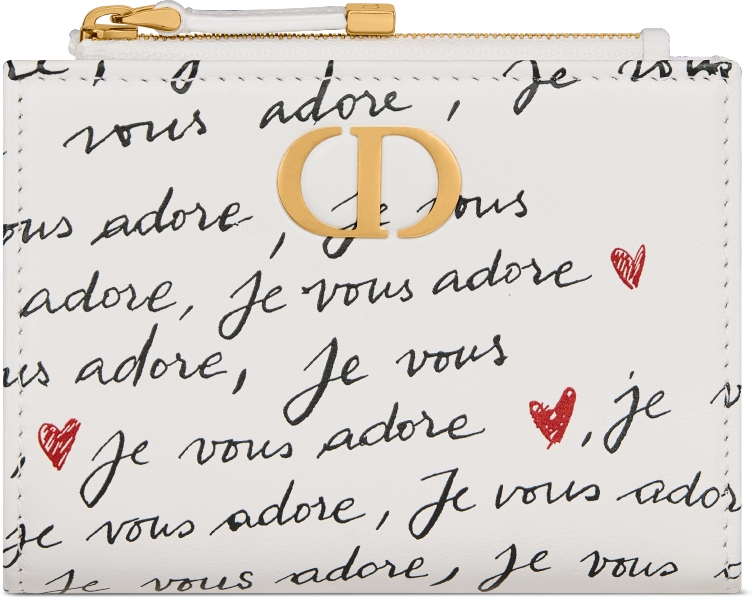 je vous
vous adore, je vous
CD
vous adore, je vous
adore, je vous adore
us adore, Je vous
, Je vous adore , je v
je vous adore, Je vous ador
Je vous adore, je vous